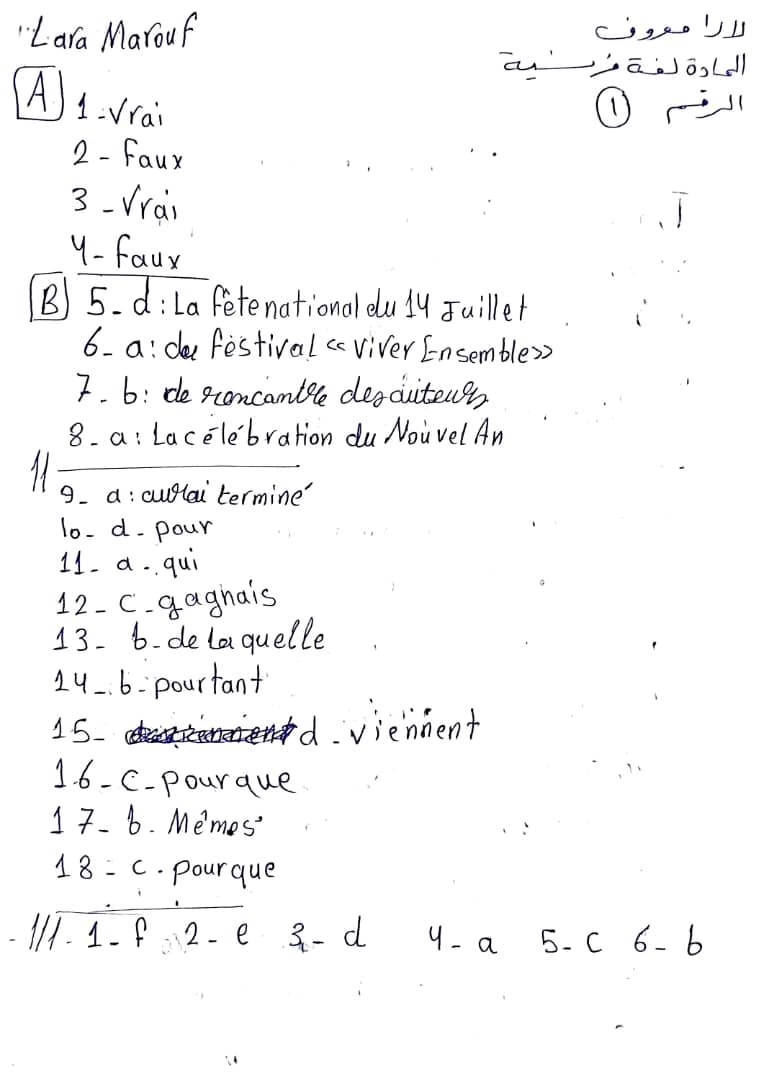 "Lara Marouf
لارا معروف
المادة لغة فرنسية
الرقم ١
A 1-Vrai
2- faux
3-Vrai
4- faux
I.
B 5- d: La fête national du 14 Juillet
6- a: du féstival <<viver Ensemble>>
7- b: de
8- a: La célébration du Nouvel An
11
9- a: aurai terminé
10- d- pour
11- a-. qui
12- c- gagnais
13- b- de la quelle
14-. b- pourtant
15- d- viennent
16- c- pour que
17- b. Mêmes
18- c. pour que
- 111- 1- f 2- e 3- d 4- a 5- c 6- b